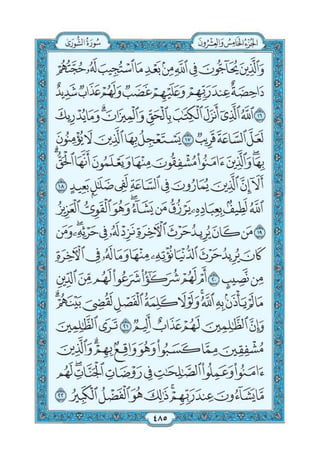 الجزء الخامس والعشرون سورة الشورى
وَٱلَّذِينَ يُحَآجُّونَ فِي ٱللَّهِ مِنۢ بَعْدِ مَا ٱسْتُجِيبَ لَهُۥ حُجَّتُهُمْ
دَاحِضَةٌ عِندَ رَبِّهِمْ وَعَلَيْهِمْ غَضَبٌ وَلَهُمْ عَذَابٌ شَدِيدٌ
١٦ ٱللَّهُ ٱلَّذِيٓ أَنزَلَ ٱلْكِتَٰبَ بِٱلْحَقِّ وَٱلْمِيزَانَ وَمَا يُدْرِيكَ
لَعَلَّ ٱلسَّاعَةَ قَرِيبٌ ١٧ يَسْتَعْجِلُ بِهَا ٱلَّذِينَ لَا يُؤْمِنُونَ
بِهَا وَٱلَّذِينَ ءَامَنُوا۟ مُشْفِقُونَ مِنْهَا وَيَعْلَمُونَ أَنَّهَا ٱلْحَقُّ
أَلَآ إِنَّ ٱلَّذِينَ يُمَارُونَ فِي ٱلسَّاعَةِ لَفِي ضَلَٰلٍۭ بَعِيدٍ ١٨
ٱللَّهُ لَطِيفٌۢ بِعِبَادِهِۦ يَرْزُقُ مَن يَشَآءُ وَهُوَ ٱلْقَوِيُّ ٱلْعَزِيزُ
١٩ مَن كَانَ يُرِيدُ حَرْثَ ٱلْءَاخِرَةِ نَزِدْ لَهُۥ فِي حَرْثِهِۦ وَمَن
كَانَ يُرِيدُ حَرْثَ ٱلدُّنْيَا نُؤْتِهِۦ مِنْهَا وَمَا لَهُۥ فِي ٱلْءَاخِرَةِ
مِن نَّصِيبٍ ٢٠ أَمْ لَهُمْ شُرَكَٰٓؤُا۟ شَرَعُوا۟ لَهُم مِّنَ ٱلدِّينِ
مَا لَمْ يَأْذَنۢ بِهِ ٱللَّهُ وَلَوْلَا كَلِمَةُ ٱلْفَصْلِ لَقُضِيَ بَيْنَهُمْ
وَإِنَّ ٱلظَّٰلِمِينَ لَهُمْ عَذَابٌ أَلِيمٌ ٢١ تَرَى ٱلظَّٰلِمِينَ
مُشْفِقِينَ مِمَّا كَسَبُوا۟ وَهُوَ وَاقِعٌۢ بِهِمْ وَٱلَّذِينَ
ءَامَنُوا۟ وَعَمِلُوا۟ ٱلصَّٰلِحَٰتِ فِي رَوْضَاتِ ٱلْجَنَّاتِ لَهُم
مَّا يَشَآءُونَ عِندَ رَبِّهِمْ ذَٰلِكَ هُوَ ٱلْفَضْلُ ٱلْكَبِيرُ ٢٢
٤٨٥